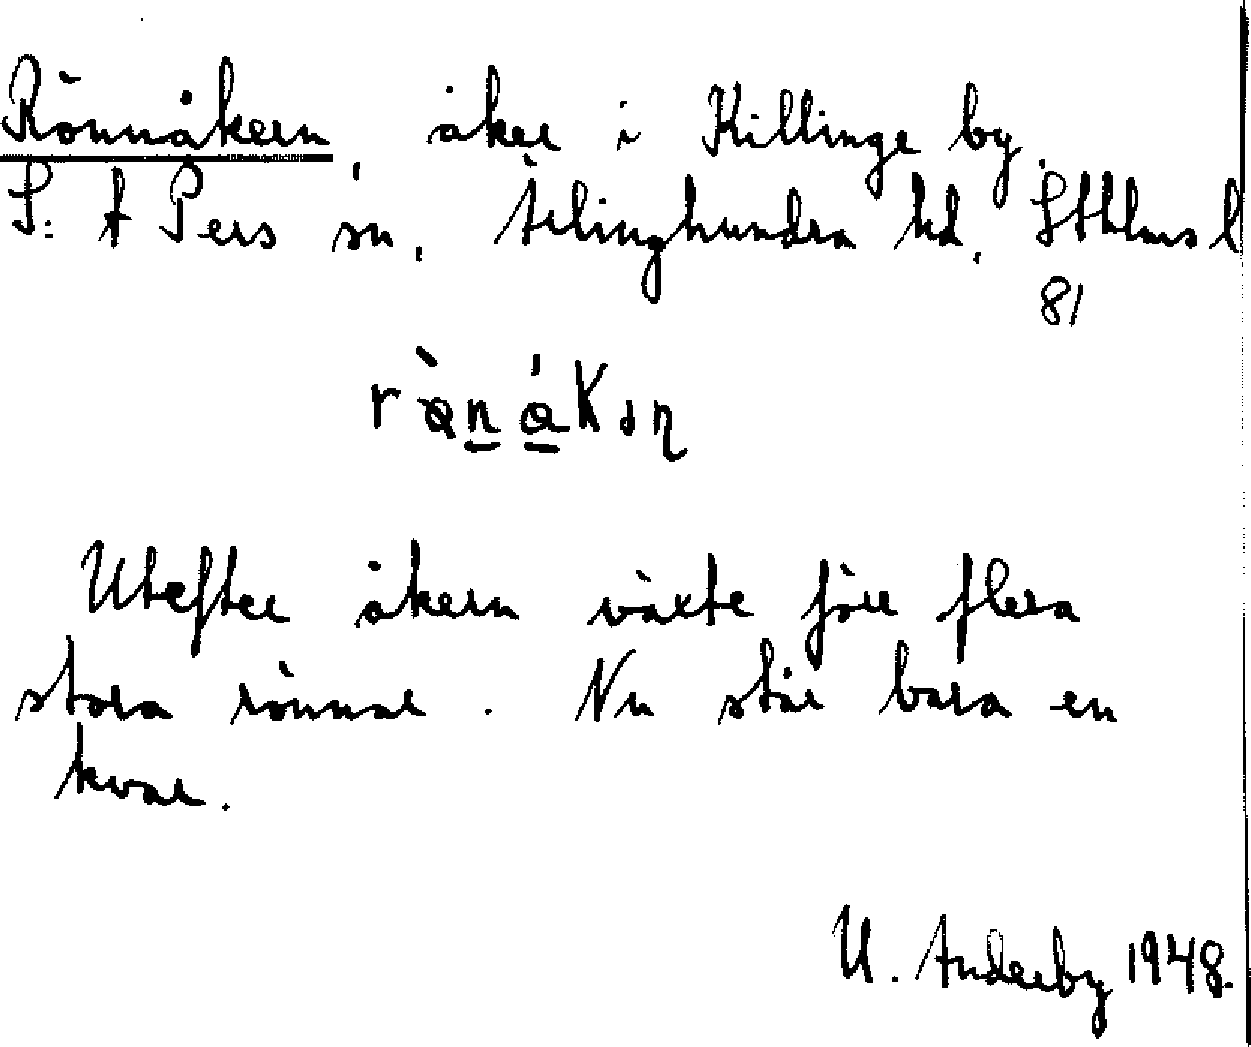 Rönnåkern, åker i Killinge by,
S:t Pers sn, Ärlinghundra hd, Sthlms l
81
Utefter åkern växte förr flera
stora rönnar. Nu står bara en
kvar.
U. Anderby 1948.